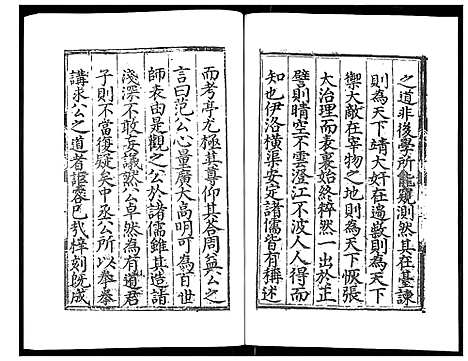 之道非後學所能窺測然其在臺諫
則為天下靖大奸在邊徼則為天下
禦大敵在宰物之地則為天下恢張
大治理而表裏始終粹然一出於正
譬則晴空不雲澄江不波人人得而
知也伊洛橫渠安定諸儒皆有稱述
而考亭尤極其尊仰其答周益公之
言曰范公心量廣大高明可為百世
師表由是觀之公於諸儒雖其造詣
淺深不敢妄議然公卓然為有道君
子則不當復疑矣中丞公所以拳拳
講求公之道者詎容已哉梓刻既成